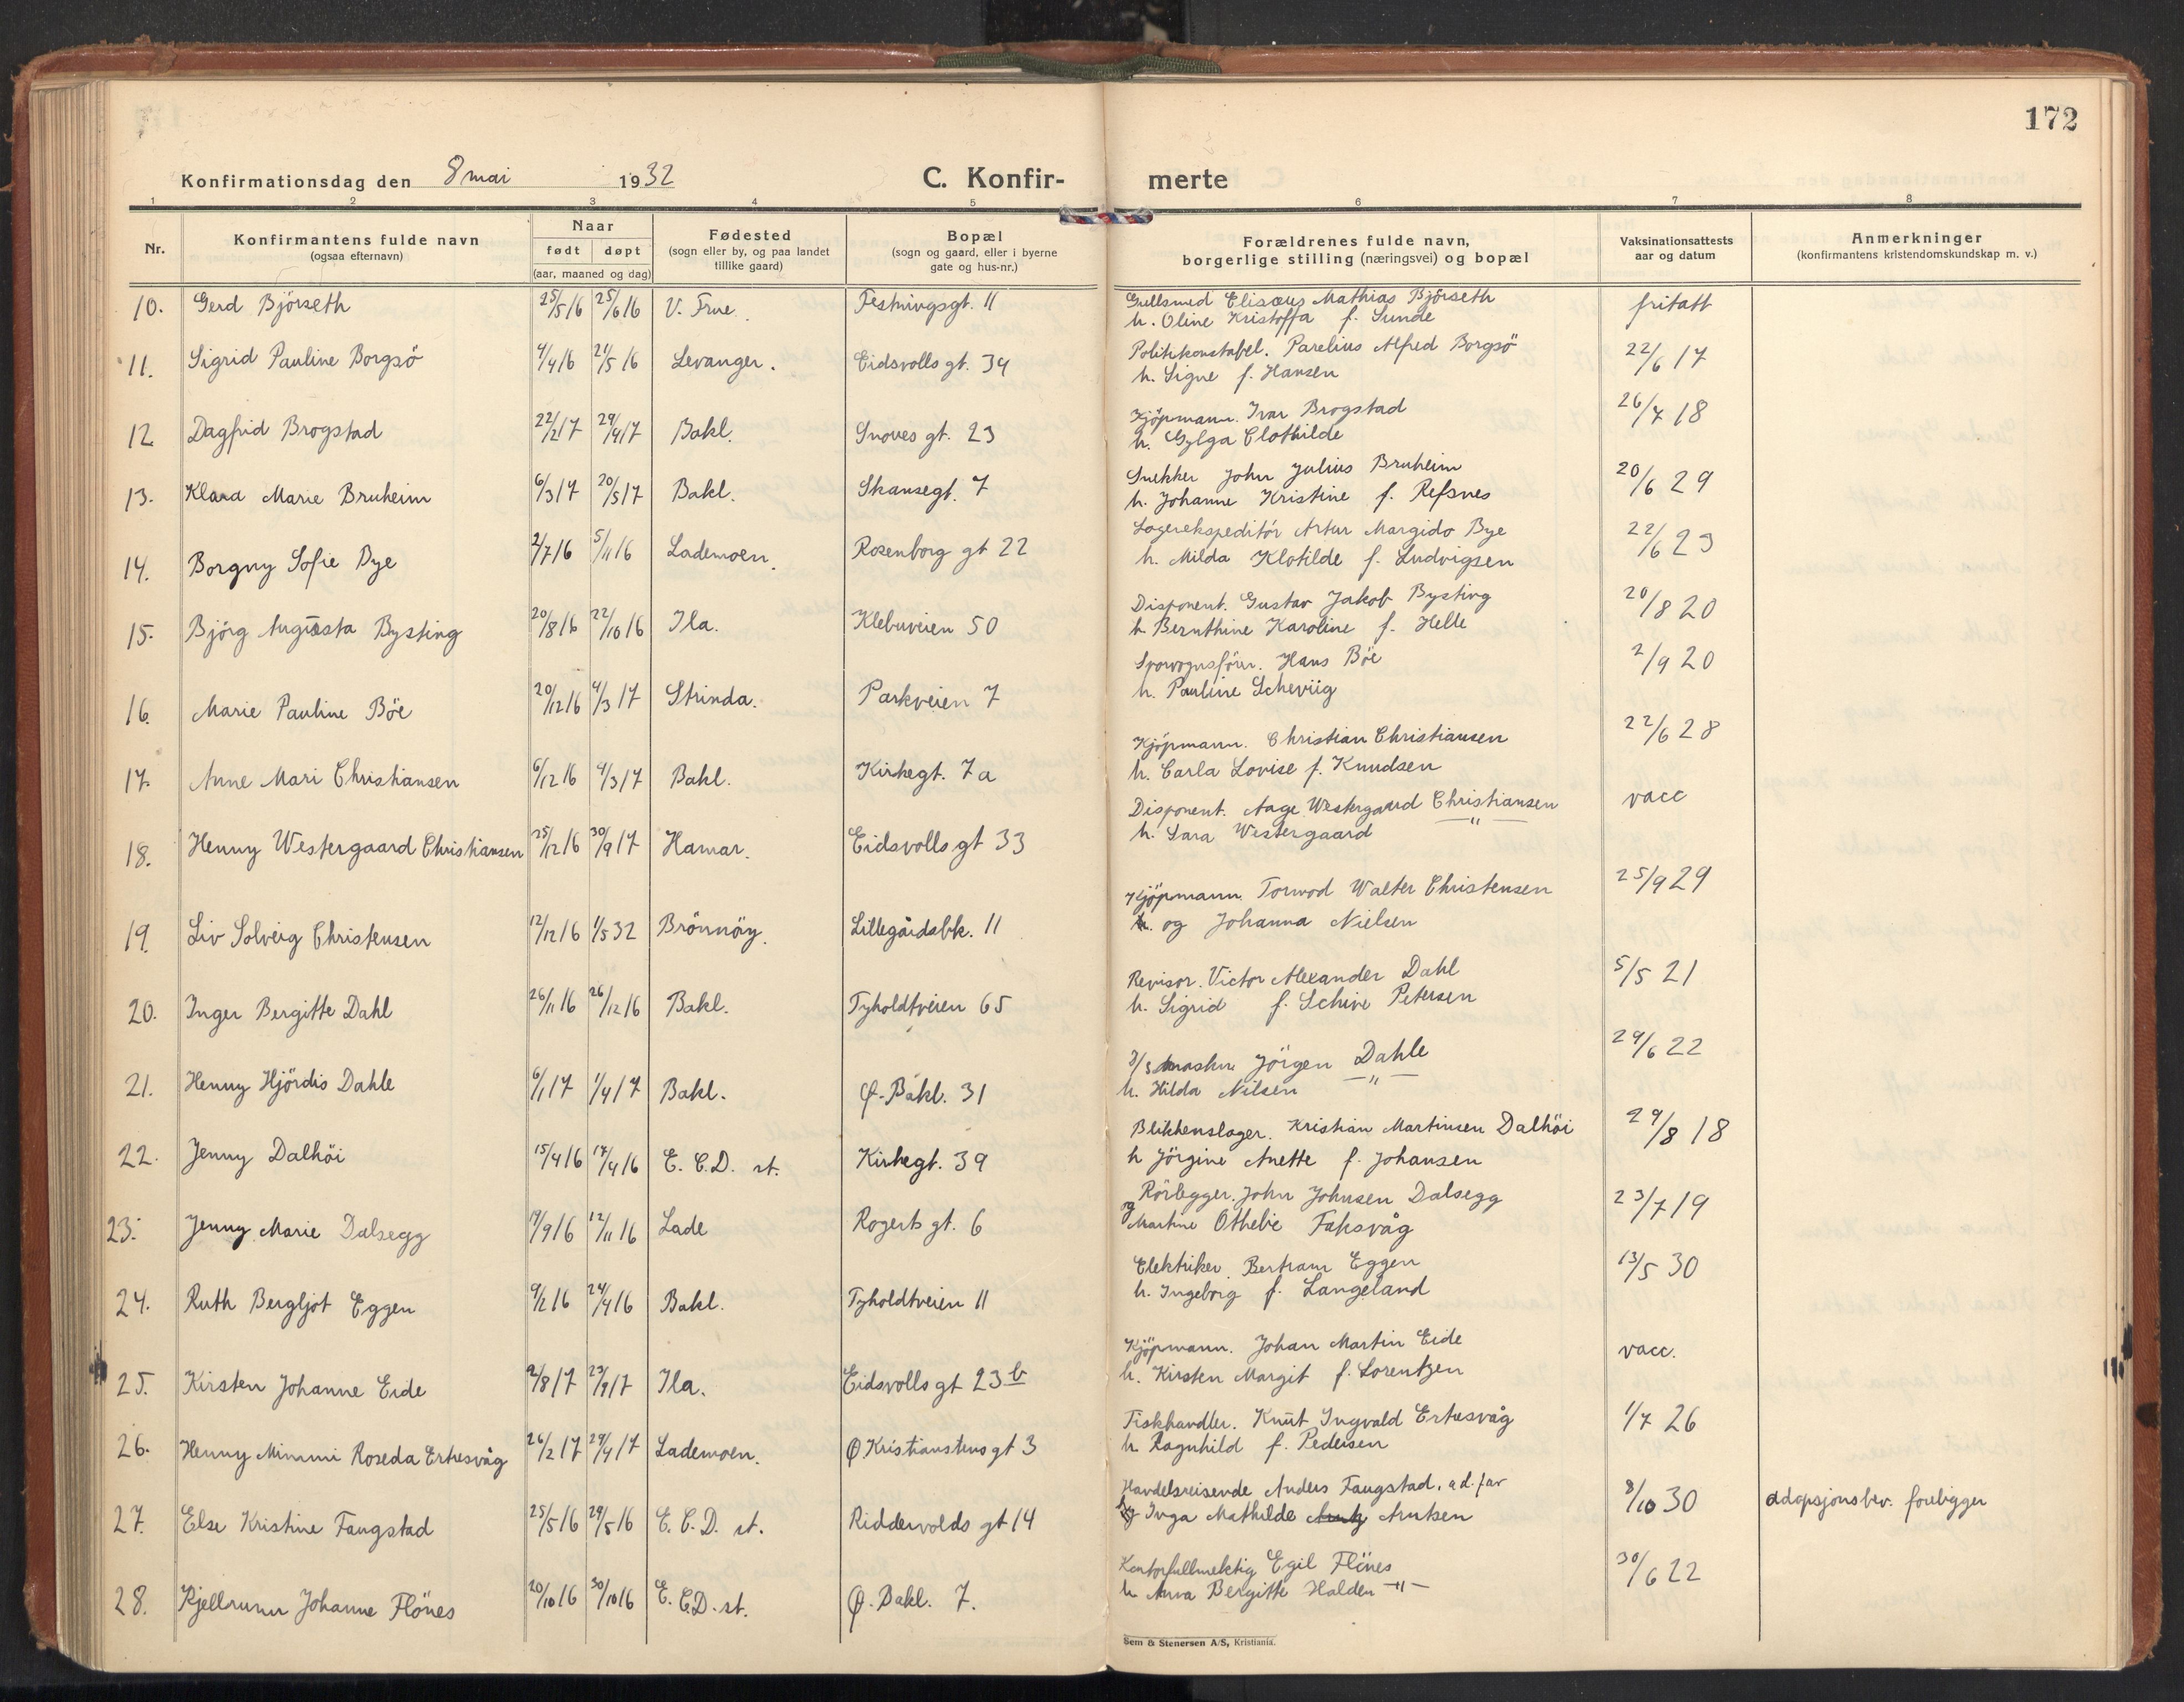 172
Konfirmationsdag den 8 mai 1932 C. Konfir- merte
1 2 3 4 5 6 7 8
Nr.
Konfirmantens fulde navn
(ogsaa efternavn)
Naar
født døpt
(aar, maaned og dag)
Fødested
(sogn eller by, og paa landet
tillike gaard)
Bopæl
(sogn og gaard, eller i byerne
gate og hus-nr.)
Forældrenes fulde navn,
borgerlige stilling (næringsvei) og bopæl
Vaksinationsattests
aar og datum
Anmerkninger
(konfirmantens kristendomskundskap m. v.)
10. Gerd Björseth 25/5 16 25/6 16 V. Frue. Festningsgt. 11 Gullsmed Elisæus Mathias Björseth fritatt
h. Oline Kristoffa f. Sunde
11. Sigrid Pauline Borgsö 4/4 16 21/5 16 Levanger. Eidsvolls gt. 34 Politikonstabel. Parelius Alfred Borgsö 22/6 17
h. Signe f. Hansen
12 Dagfrid Brogstad 22/2 17 29/4 17 Bakl. Snoves gt. 23 Kjöpmann. Ivar Brogstad 26/7 18
h. Gylga Clothilde
13. Klara Marie Bruheim 6/3 17 20/5 17 Bakl. Skansegt. 7 Snekker John Julius Bruheim 20/6 29
h. Johanne Kristine f. Refsnes
14. Borgny Sofie Bye 2/7 16 5/11 16 Lademoen. Rosenborg gt 22 Lagerekspeditör Artur Margido Bye 22/6 23
h. Milda Klotilde f. Ludvigsen
15. Björg Augusta Bysting 20/8 16 22/10 16 Ila. Klebuveien 50 Disponent. Gustav Jakob Bysting 20/8 20
h. Bernthine Karoline f. Helle
16. Marie Pauline Böe 20/12 16 4/3 17 Strinda. Parkveien 7 Sporvognsförer. Hans Böe 2/9 20
h. Pauline Scheviig
17. Anne Mari Christiansen 6/12 16 4/3 17 Bakl. Kirkegt. 7a Kjöpmann. Christian Christiansen 22/6 28
h. Carla Lovise f. Knudsen
18. Henny Westergaard Christiansen 25/12 16 30/9 17 Hamar. Eidsvolls gt 33 Disponent. Aage Westergaard Christiansen vacc
h. Sara Westergaard — " —
19. Liv Solveig Christensen 12/12 16 1/5 32 Brönnöy. Lillegårdsbk. 11 Kjöpmann. Tormod Walter Christensen 25/9 29
h. og Johanna Nielsen
20. Inger Bergitte Dahl 26/11 16 26/12 16 Bakl. Tyholdtveien 65 Revisor. Victor Alexander Dahl 5/5 21
h. Sigrid f. Schive Petersen
21. Henny Hjördis Dahle 6/1 17 1/4 17 Bakl. Ø. Bakl. 31 Jörgen Dahle 29/6 22
h. Hilda Nilsen — " —
22. Jenny Dalhöi 15/4 16 17/4 16 E. C. D. st. Kirkegt. 39 Blikkenslager. Kristian Martinsen Dalhöi 29/8 18
h Jörgine Anette f. Johansen
23. Jenny Marie Dalsegg 17/9 16 12/11 16 Lade Rogerts gt. 6 Rörlegger. John Johnsen Dalsegg 23/7 19
og Martine Othelie Faksvåg
24. Ruth Bergljot Eggen 9/2 16 24/4 16 Bakl. Tyholdtveien 11 Elektriker. Bertram Eggen 13/5 30
h. Ingeborg f. Langeland
25. Kirsten Johanne Eide 2/8 17 23/9 17 Ila. Eidsvolls gt 23 b Kjöpmann. Johan Martin Eide vacc.
h. Kirsten Margit f. Lorentzen
26. Henny Mimmi Roseda Ertesvåg 26/2 17 29/4 17 Lademoen. Ø Kristianstens gt 3 Fiskhandler. Knut Ingvald Ertesvåg 1/7 26
h. Ragnhild f. Pedersen
27. Else Kristine Faugstad 25/5 16 29/5 16 E. C. D. st. Riddervolds gt 14 Handelsreisende Anders Faugstad, ad. far 8/10 30 adopsjonsbev. foreligger
og Inga Mathilde Arntsen
28. Kjellrunn Johanne Flönes 20/10 16 30/10 16 E. C.D. st. Ø. Bakl. 7. Kontorfullmektig Egil Flönes 30/6 22
h Anna Bergitte Halden — " —
Sem & Stenersen A/S, Kristiania.